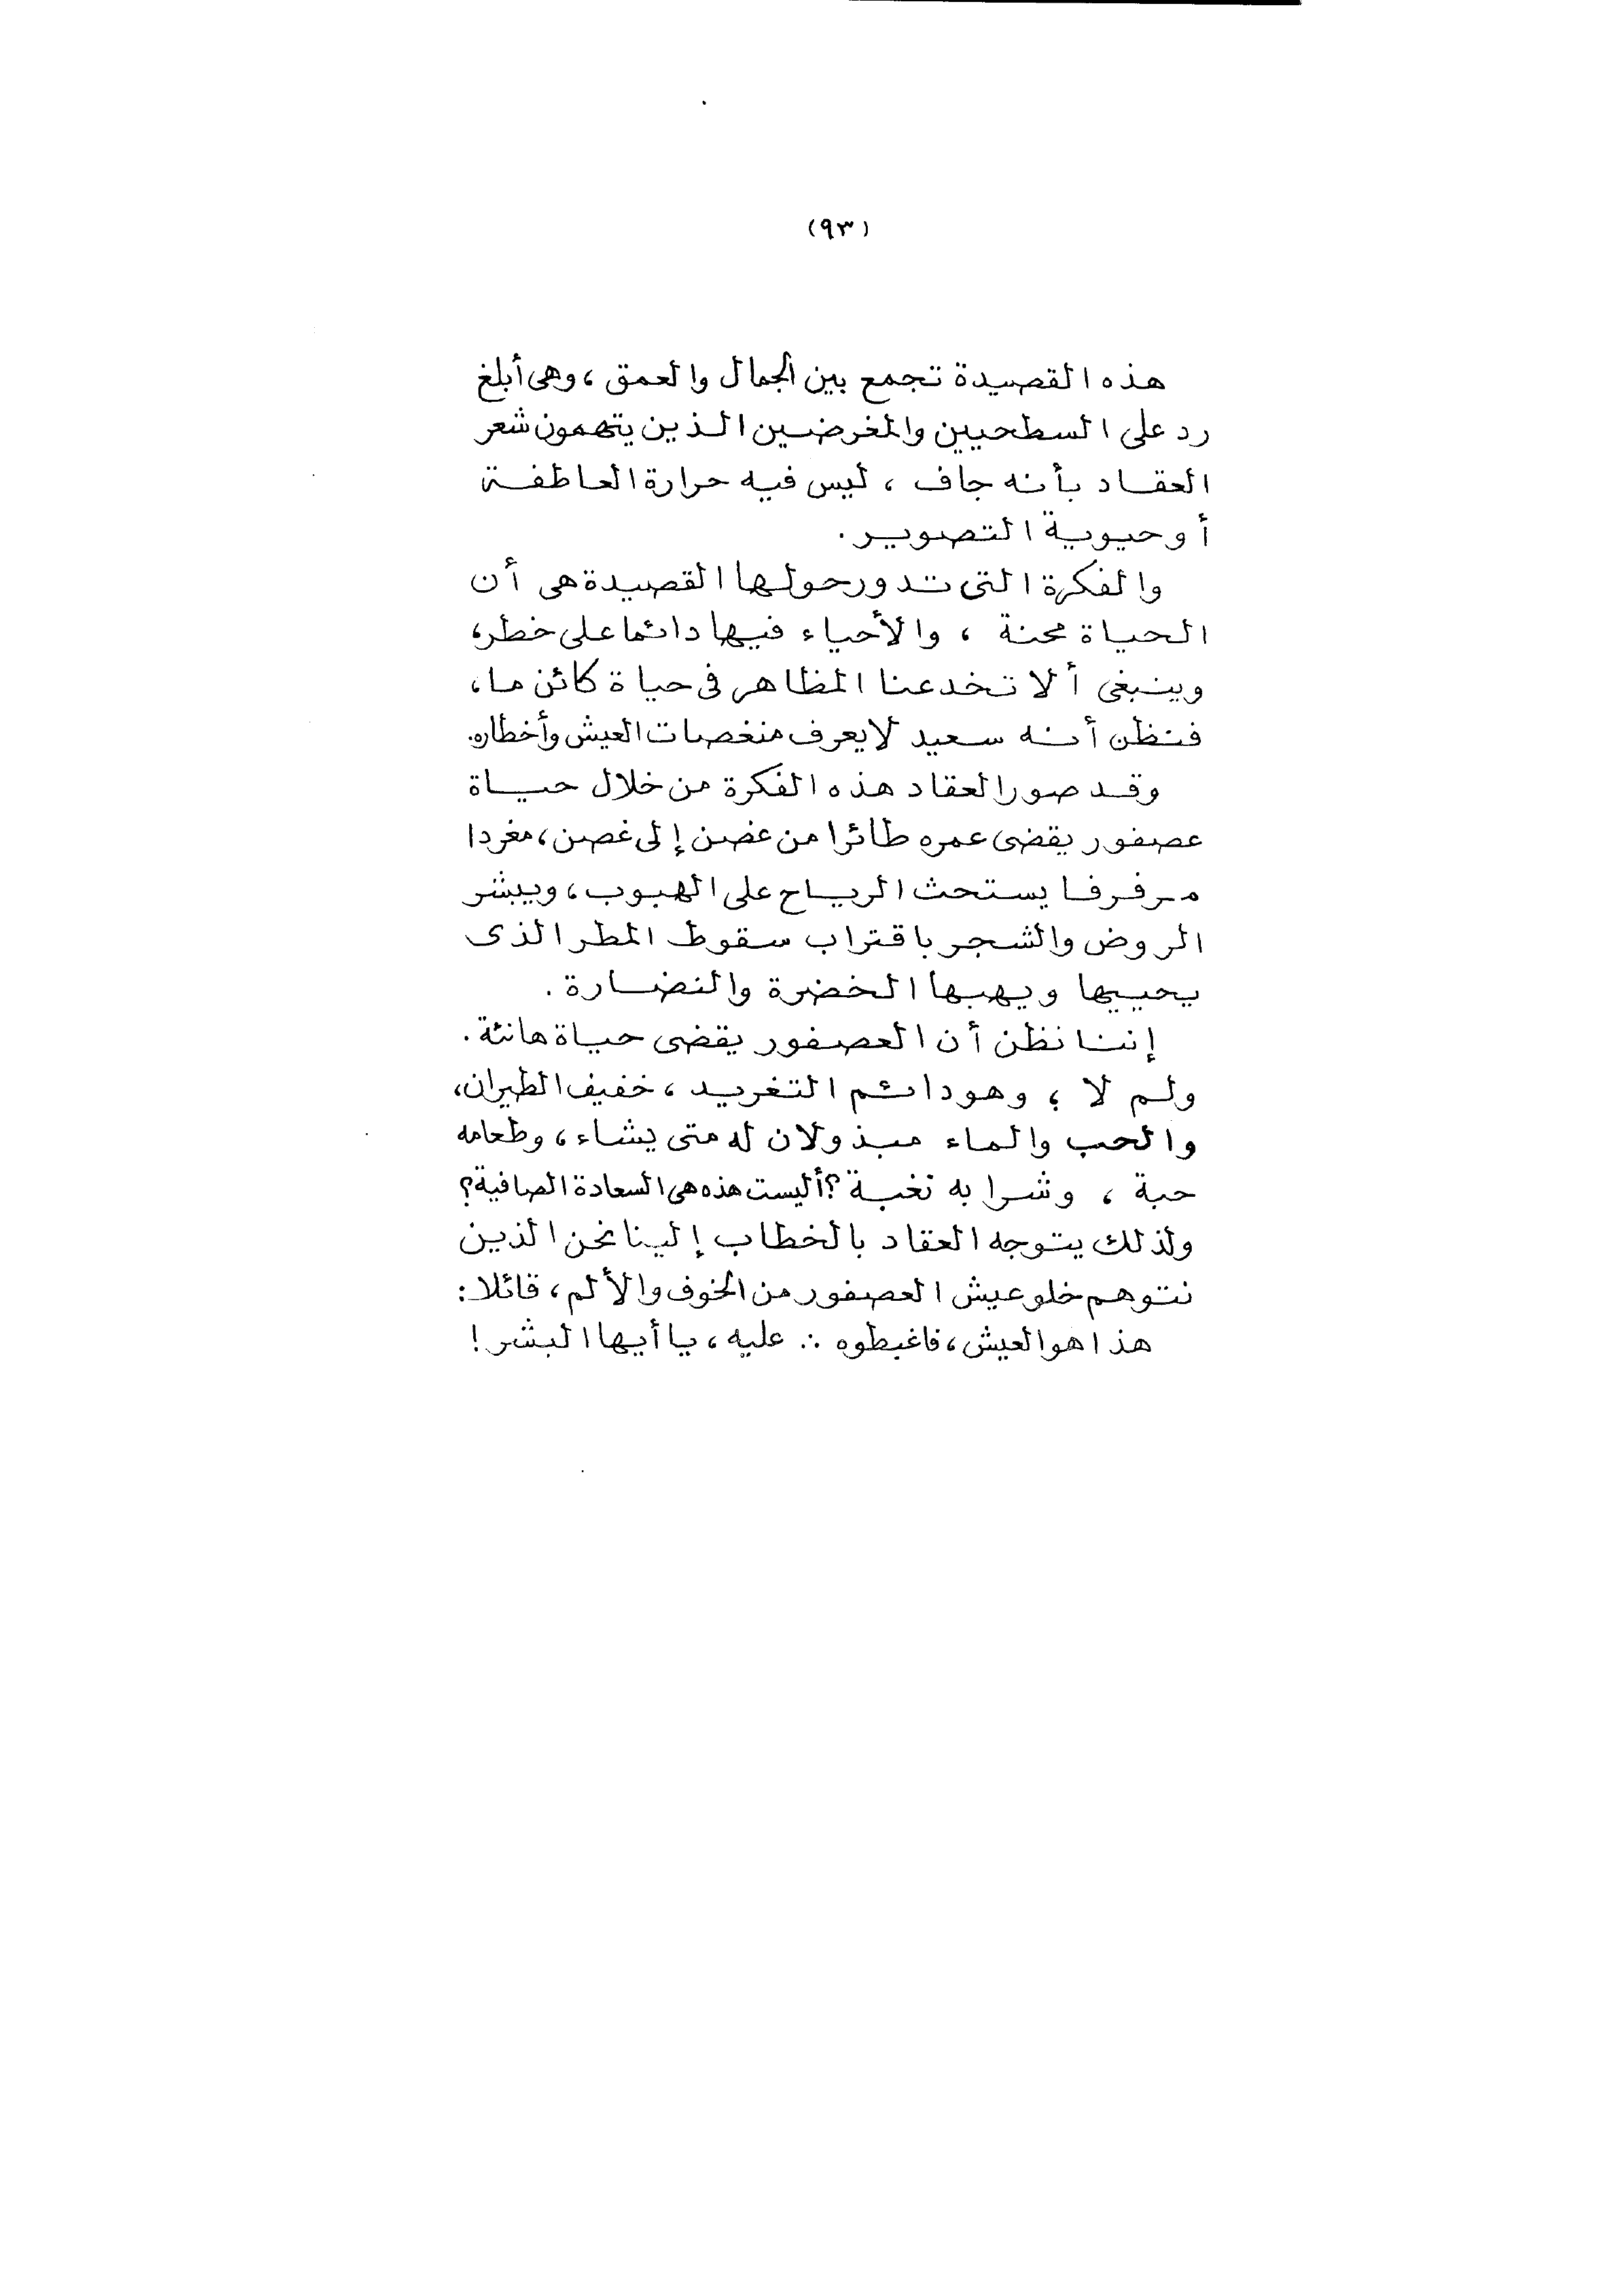 (٩٣)
هذه القصيدة تجمع بين الجمال والعمق ، وهى أبلغ
رد على السطحيين والمغرضين الذين يتهمون شعر
العقاد بأنه جاف ، ليس فيه حرارة العاطفة
أو حيوية التصوير .
والفكرة التى تدور حولها القصيدة هى أن
الحياة محنة ، والأحياء فيها دائما على خطر ،
وينبغى ألا تخدعنا المظاهر فى حياة كائن ما ،
فنظن أنه سعيد لا يعرف منغصات العيش وأخطاره .
وقد صور العقاد هذه الفكرة من خلال حياة
عصفور يقضى عمره طائرا من غصن إلى غصن ، مغردا
مرفرفا يستحث الرياح على الهبوب ، ويبشر
الروض والشجر باقتراب سقوط المطر الذى
يحييها ويهبها الخضرة والنضارة .
إننا نظن أن العصفور يقضى حياة هانئة .
ولم لا ؛ وهو دائم التغريد ، خفيف الطيران ،
والحب والماء مبذولان له متى يشاء ، وطعامه
حبة ، وشرابه نغبة ؟ أليست هذه هى السعادة الصافية ؟
ولذلك يتوجه العقاد بالخطاب إلينا نحن الذين
نتوهم خلو عيش العصفور من الخوف والألم ، قائلا :
هذا هو العيش ، فاغبطوه ∴ عليه ، يا أيها البشر !